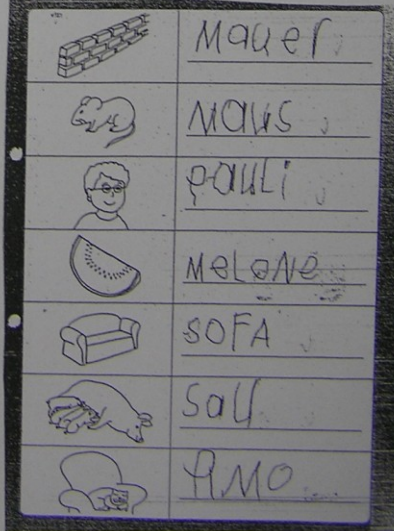 Mauer
Maus
Pauli
MeLoNe
SOFA
Sau
AMO